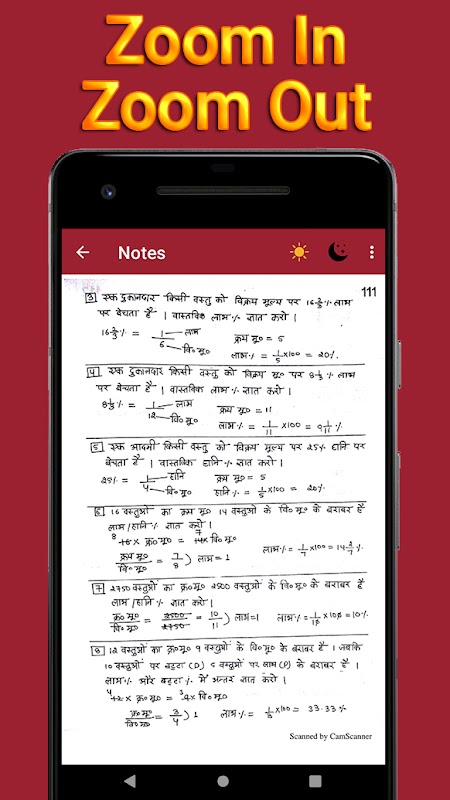 Zoom In
Zoom Out
Notes
111
3 एक दुकानदार किसी वस्तु को विक्रय मूल्य पर 16⅔% लाभ
पर बेचता है । वास्तविक लाभ% ज्ञात करो ।
16⅔% = 1/6 → लाभ → वि०मू० क्रय मू० = 5
लाभ% = 1/5 ×100 = 20%.
4 एक दुकानदार किसी वस्तु को विक्रय मू० पर 8⅓% लाभ
पर बेचता है । वास्तविक लाभ% ज्ञात करो ।
8⅓% = 1/12 → लाभ → वि०मू० क्रय मू० = 11
लाभ% = 1/11 ×100 = 9 1/11 %
5 एक आदमी किसी वस्तु को विक्रय मूल्य पर 25% हानि पर
बेचता है । वास्तविक हानि% ज्ञात करो ।
25% = 1/4 → हानि → वि०मू० क्रय मू० = 5
हानि% = 1/5 ×100 = 20%
16 वस्तुओं का क्रय मू० 14 वस्तुओं के वि० मू० के बराबर है
लाभ/हानि% ज्ञात करो ।
8 16 × क्र०मू० = 7 14× वि०मू०
क्रय मू०/वि०मू० = 7/8 ) लाभ = 1 लाभ% = 1/7 ×100 = 14 2/7 %
7 2750 वस्तुओं का क्र०मू० 2500 वस्तुओं के वि०मू० के बराबर है
लाभ/हानि% ज्ञात करो ।
क्र० मू०/वि०मू० = 2500/2750 = 10/11 ) लाभ=1 लाभ% = 1/10 ×100 = 10%
8 12 वस्तुओं का क्र०मू० 9 वस्तुओं के वि०मू० के बराबर है । जबकि
10 वस्तुओं पर बट्टा (D) 5 वस्तुओं पर लाभ (P) के बराबर है ।
लाभ% और बट्टा% में अन्तर ज्ञात करो ।
4 12 × क्र०मू० = 3 9× वि०मू०
क्र०मू०/वि०मू० = 3/4 ) 1 लाभ% = 1/3 ×100 = 33.33%
Scanned by CamScanner